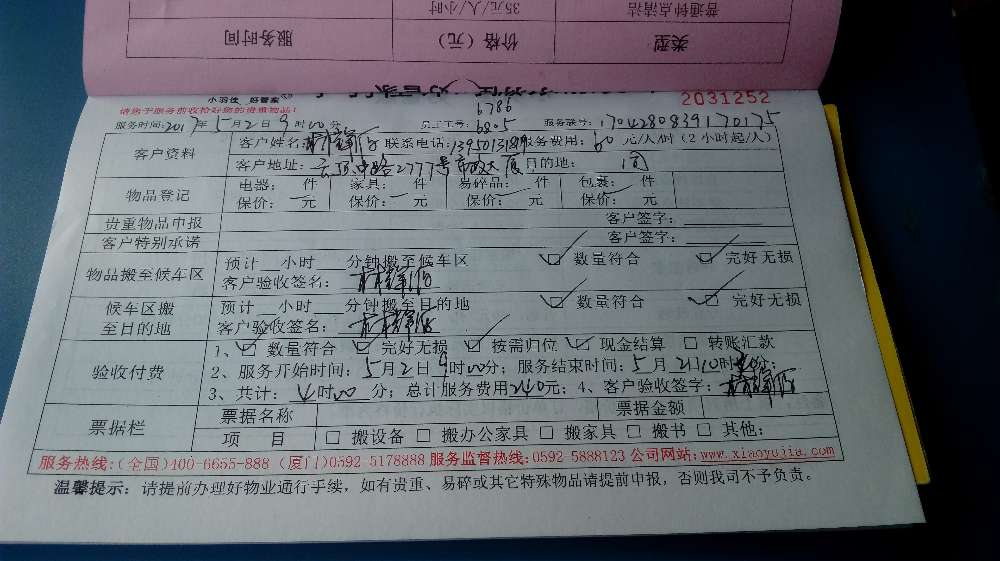 普通钟点清洁
35元/人/小时
类型
价格(元)
服务时间
小羽佳 好管家
2031252
请您于服务前收拾好您的贵重物品!
6786
服务时间:2017年5月2日9时00分 员工工号:6805 服务联号:17042808391170175
客户资料
客户姓名: 联系电话: 服务费用:60元/人/时(2小时起/人)
客户地址:云顶中路2777号市政大厦 目的地:同
物品登记
电器: 件 家具: 件 易碎品: 件 包裹: 件
保价: 元 保价: 元 保价: 元 保价: 元
贵重物品申报 客户签字:
客户特别承诺 客户签字:
物品搬至候车区
预计 小时 分钟搬至候车区 □ 数量符合 □ 完好无损
客户验收签名:
候车区搬至目的地
预计 小时 分钟搬至目的地 □ 数量符合 □ 完好无损
客户验收签名:
验收付费
1、□ 数量符合 □ 完好无损 □ 按需归位 □ 现金结算 □ 转账汇款
2、服务开始时间:5月2日9时00分;服务结束时间:5月2日10时 分;
3、共计:4时00分;总计服务费用240元;4、客户验收签字:
票据栏
票据名称 票据金额
项 目 □ 搬设备 □ 搬办公家具 □ 搬家具 □ 搬书 □ 其他:
服务热线:(全国)400-6655-888 (厦门)0592 5178888 服务监督热线:0592 5888123 公司网站:www.xiaoyujia.com
温馨提示:请提前办理好物业通行手续,如有贵重、易碎或其它特殊物品请提前申报,否则我司不予负责。